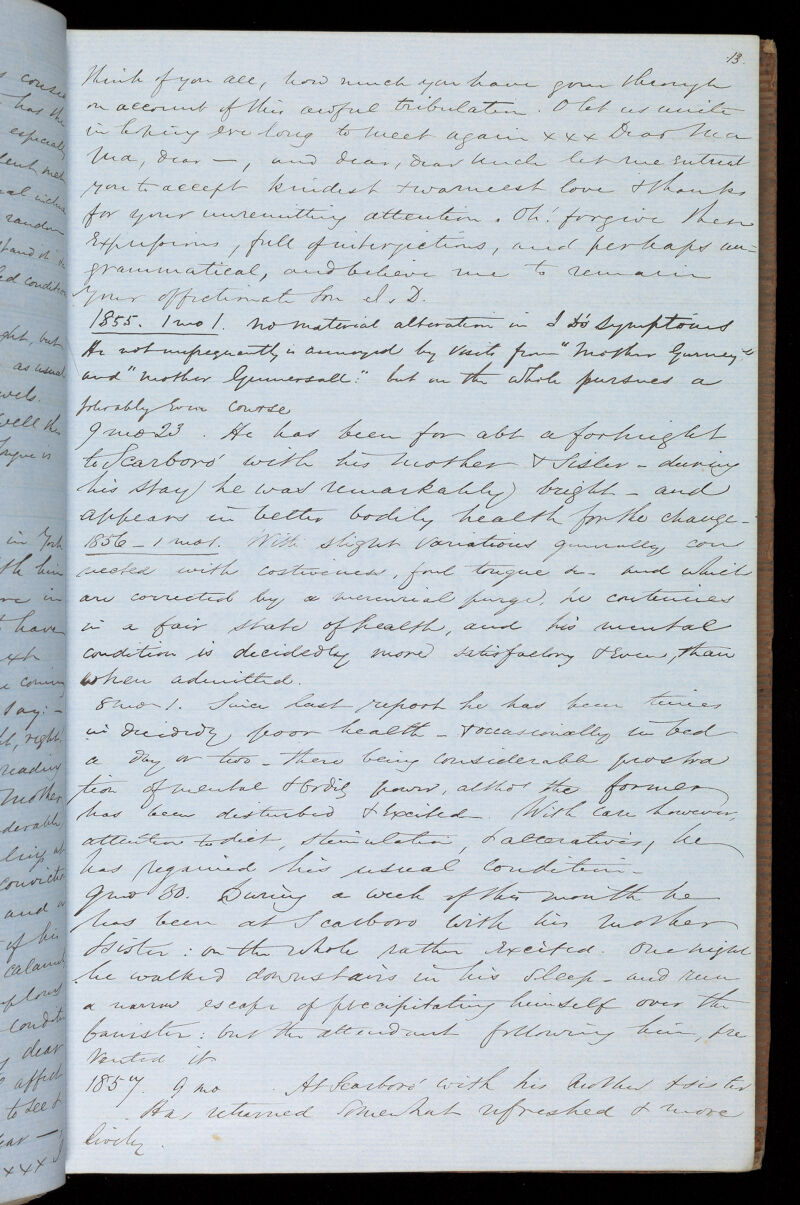 13.
think of you all, how much you have gone through
on account of this awful tribulation. O let us unite
in hoping ere long to meet again x x x Dear Ma
Ma, dear —, and dear, dear Uncle let me entreat
you to accept kindest & warmest love & thanks
for your unremitting attention. Oh! forgive these
expressions, full of interjections, and perhaps un=
grammatical, and believe me to remain
Your affectionate Son J. D.
1855. 1 mo 1. No material alteration in J D's symptoms
He not unfrequently is annoyed by visits from "Mother Gurney"
and "Mother Gummersall:" but on the whole pursues a
tolerably even course
9 mo 23. He has been for abt a fortnight
to Scarboro' with his Mother & Sister - during
his stay he was remarkably bright - and
appears in better bodily health for the change -
1856 - 1 mo 1. With slight variations generally con
nected with costiveness, foul tongue &c and which
are corrected by a mercurial purge, he continues
in a fair state of health, and his mental
condition is decidedly more satisfactory & even, than
when admitted.
8 mo 1. Since last report he has been times
in decidedly poor health - & occasionally in bed
a day or two - there being considerable prostra
tion of mental & bodily power, altho the former
has been disturbed & excited. With care however,
attention to diet, stimulation, & alteratives, he
has regained his usual condition -
9 mo 30. During a week of this month he
has been at Scarboro with his Mother
& sister: on the whole rather excited. One night
he walked downstairs in his sleep - and run
a narrow escape of precipitating himself over the
banister: but the attendant following him, pre
vented it
1857. 9 mo At Scarboro' with his Mother & sister
Has returned somewhat refreshed & more
lively.